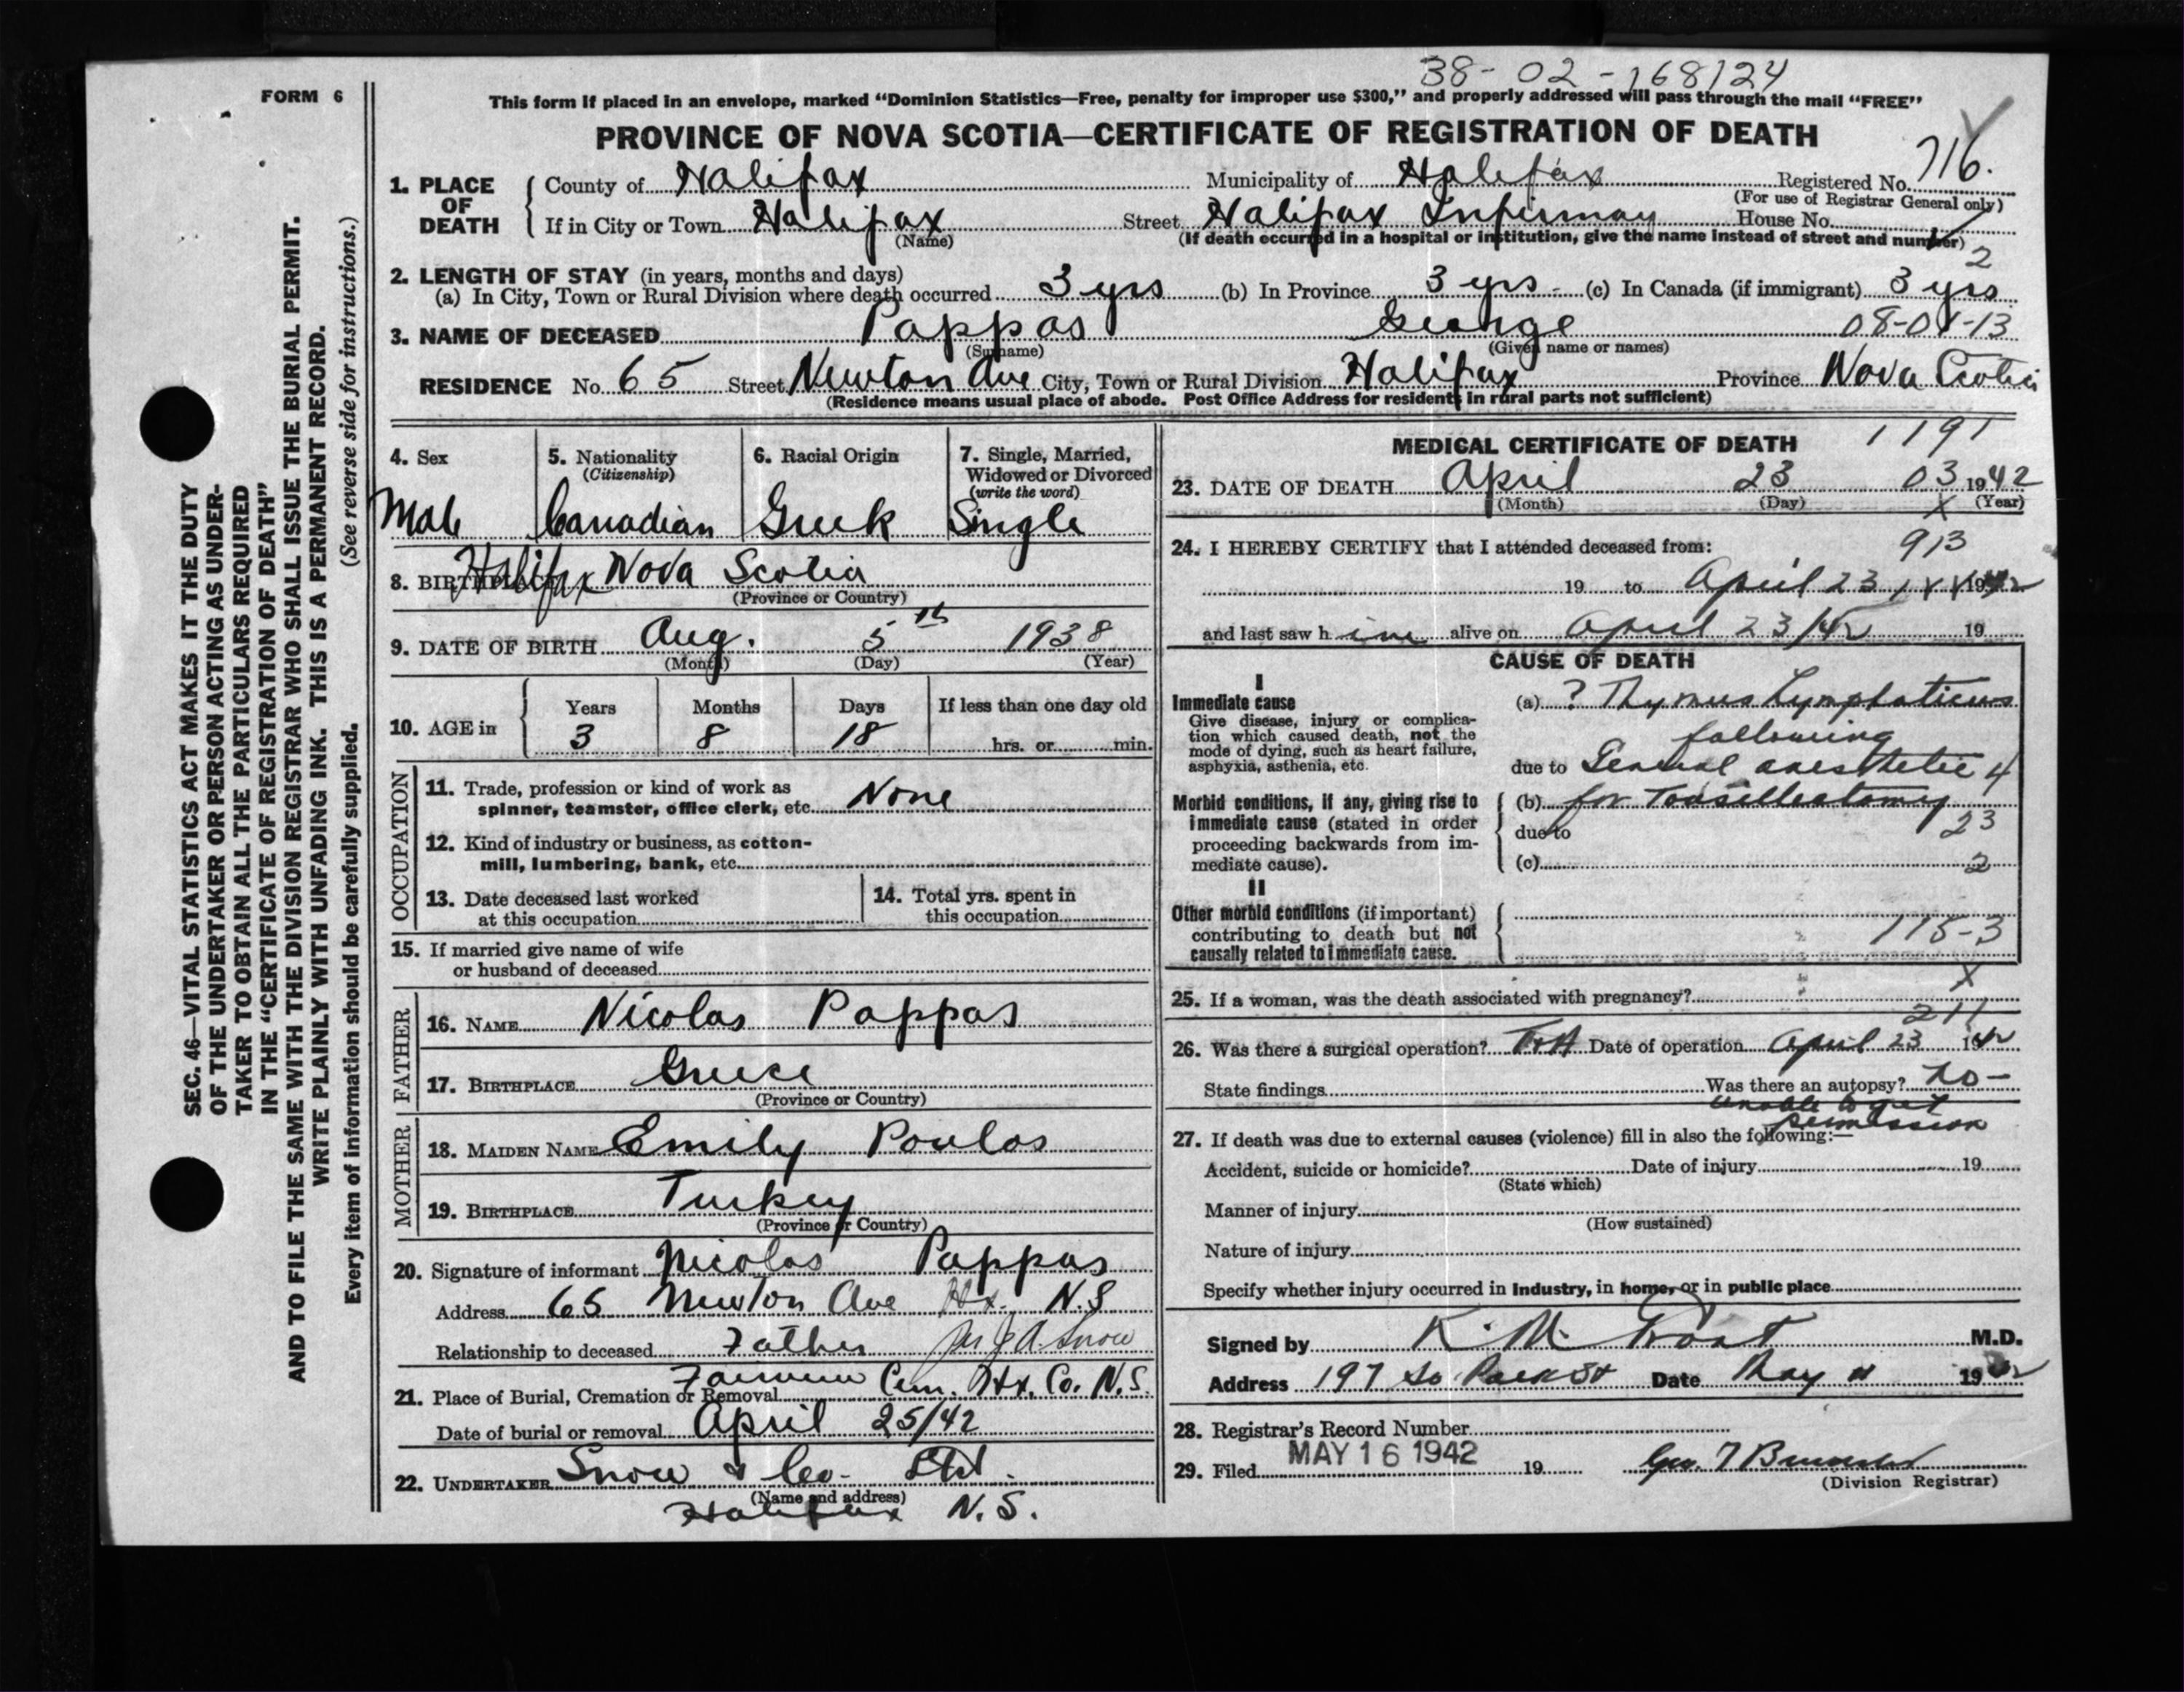 38-02-168124
FORM 6
This form if placed in an envelope, marked “Dominion Statistics—Free, penalty for improper use $300,” and properly addressed will pass through the mail “FREE”
PROVINCE OF NOVA SCOTIA—CERTIFICATE OF REGISTRATION OF DEATH
1. PLACE OF DEATH County of Halifax Municipality of Halifax Registered No. 716.
(For use of Registrar General only)
If in City or Town Halifax Street Halifax Infirmary House No.
(Name) (If death occurred in a hospital or institution, give the name instead of street and number)
2
2. LENGTH OF STAY (in years, months and days)
(a) In City, Town or Rural Division where death occurred 3 yrs (b) In Province 3 yrs - (c) In Canada (if immigrant) 3 yrs
3. NAME OF DECEASED Pappas George 08-01-13
(Surname) (Given name or names)
RESIDENCE No. 65 Street Newton Ave City, Town or Rural Division Halifax Province Nova Scotia
(Residence means usual place of abode. Post Office Address for residents in rural parts not sufficient)
4. Sex 5. Nationality (Citizenship) 6. Racial Origin 7. Single, Married, Widowed or Divorced (write the word)
Male Canadian Greek Single
8. BIRTHPLACE Halifax Nova Scotia
(Province or Country)
9. DATE OF BIRTH Aug. 5th 1938
(Month) (Day) (Year)
10. AGE in Years Months Days If less than one day old
3 8 18 hrs. or min.
OCCUPATION
11. Trade, profession or kind of work as
spinner, teamster, office clerk, etc. None
12. Kind of industry or business, as cotton-
mill, lumbering, bank, etc.
13. Date deceased last worked
at this occupation
14. Total yrs. spent in
this occupation
15. If married give name of wife
or husband of deceased
FATHER
16. NAME Nicolas Pappas
17. BIRTHPLACE Greece
(Province or Country)
MOTHER
18. MAIDEN NAME Emily Poulos
19. BIRTHPLACE Turkey
(Province or Country)
20. Signature of informant Nicolas Pappas
Address 65 Newton Ave Hx. N.S
Relationship to deceased Father Per J A. Snow
21. Place of Burial, Cremation or Removal Fairview Cem. Hx. Co. N.S
Date of burial or removal April 25/42
22. UNDERTAKER Snow & Co- Ltd.
(Name and address)
Halifax N.S.
MEDICAL CERTIFICATE OF DEATH 1191
23. DATE OF DEATH April 23 03 1942
(Month) (Day) X (Year)
24. I HEREBY CERTIFY that I attended deceased from: 913
19 to April 23 1942
and last saw him alive on April 23/42 19
CAUSE OF DEATH
I
Immediate cause
Give disease, injury or complica-
tion which caused death, not the
mode of dying, such as heart failure,
asphyxia, asthenia, etc.
(a) ? Thymus Lymphaticus
following
due to General anesthetic 4
Morbid conditions, if any, giving rise to
immediate cause (stated in order
proceeding backwards from im-
mediate cause).
(b) for Tonsillectomy
due to 23
(c) 2
II
Other morbid conditions (if important)
contributing to death but not
causally related to immediate cause.
115-3
X
25. If a woman, was the death associated with pregnancy?
211
26. Was there a surgical operation? T+A Date of operation April 23 1942
State findings Was there an autopsy? no-
unable to get
permission
27. If death was due to external causes (violence) fill in also the following:—
Accident, suicide or homicide? Date of injury 19
(State which)
Manner of injury
(How sustained)
Nature of injury
Specify whether injury occurred in industry, in home, or in public place
Signed by K. M. Grant M.D.
Address 197 So Park St Date May 11 1942
28. Registrar's Record Number
29. Filed MAY 16 1942 19
(Division Registrar)
SEC. 46—VITAL STATISTICS ACT MAKES IT THE DUTY
OF THE UNDERTAKER OR PERSON ACTING AS UNDER-
TAKER TO OBTAIN ALL THE PARTICULARS REQUIRED
IN THE “CERTIFICATE OF REGISTRATION OF DEATH”
AND TO FILE THE SAME WITH THE DIVISION REGISTRAR WHO SHALL ISSUE THE BURIAL PERMIT.
WRITE PLAINLY WITH UNFADING INK. THIS IS A PERMANENT RECORD.
Every item of information should be carefully supplied. (See reverse side for instructions.)